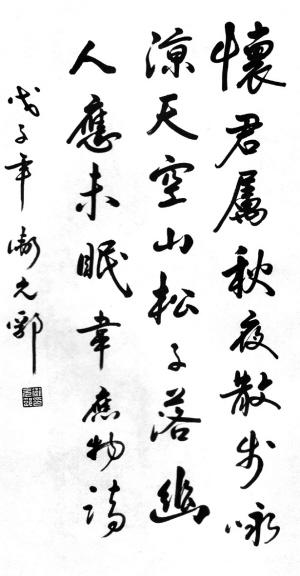 懷君屬秋夜散步咏
涼天空山松子落幽
人應未眠韋應物詩
戊子年衛元郛